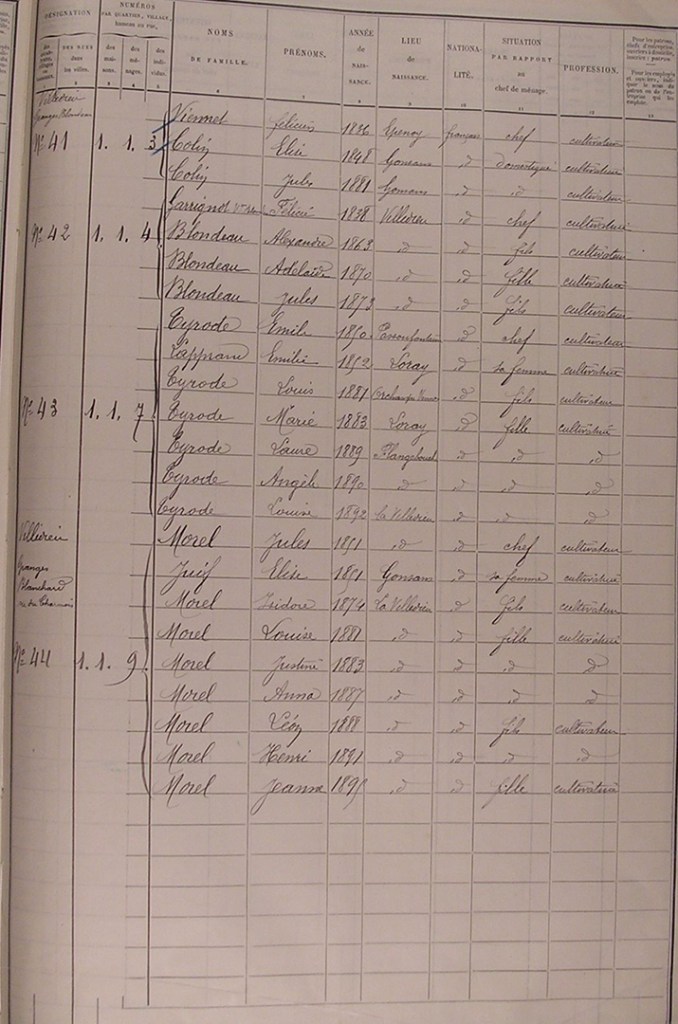 DÉSIGNATION
NUMÉROS
PAR QUARTIER, VILLAGE, hameau ou rue,
DES RUES dans les villes.
des maisons.
des ménages.
des individus.
NOMS DE FAMILLE.
PRÉNOMS.
ANNÉE de NAISSANCE.
LIEU de NAISSANCE.
NATIONALITÉ.
SITUATION PAR RAPPORT au chef de ménage.
PROFESSION.
Viennet Félicien 1836 Epenoy française chef cultivateur
N° 41 1. 1. 3 Colin Elise 1848 Gonsans d domestique cultivateur
Colin Jules 1881 Gonsans id id cultivateur
Garrignot Félicie 1838 Villedieu id chef cultivateur
N° 42 1. 1. 4 Blondeau Alexandre 1863 id id fils cultivateur
Blondeau Adelaide 1870 id id fille cultivatrice
Blondeau Jules 1873 id id fils cultivateur
Tyrode Emile 1850 Passonfontaine id chef cultivateur
Emilie 1852 Loray id sa femme cultivatrice
Tyrode Louis 1881 id fils cultivateur
N° 43 1. 1. 7 Tyrode Marie 1883 Loray id fille cultivatrice
Tyrode Laure 1889 Flangebouche id id id
Tyrode Angèle 1890 id id id id
Tyrode Louise 1892 La Villedieu id id id
Morel Jules 1851 id id chef cultivateur
Granges Blanchard
Juif Elise 1851 Gonsans id sa femme cultivatrice
Morel Isidore 1874 La Villedieu id fils cultivateur
Morel Louise 1881 id id fille cultivatrice
N° 44 1. 1. 9. Morel Justine 1883 id id id id
Morel Anna 1887 id id id id
Morel Léon 1888 id id fils cultivateur
Morel Henri 1891 id id id id
Morel Jeanne 1895 id id fille cultivatrice